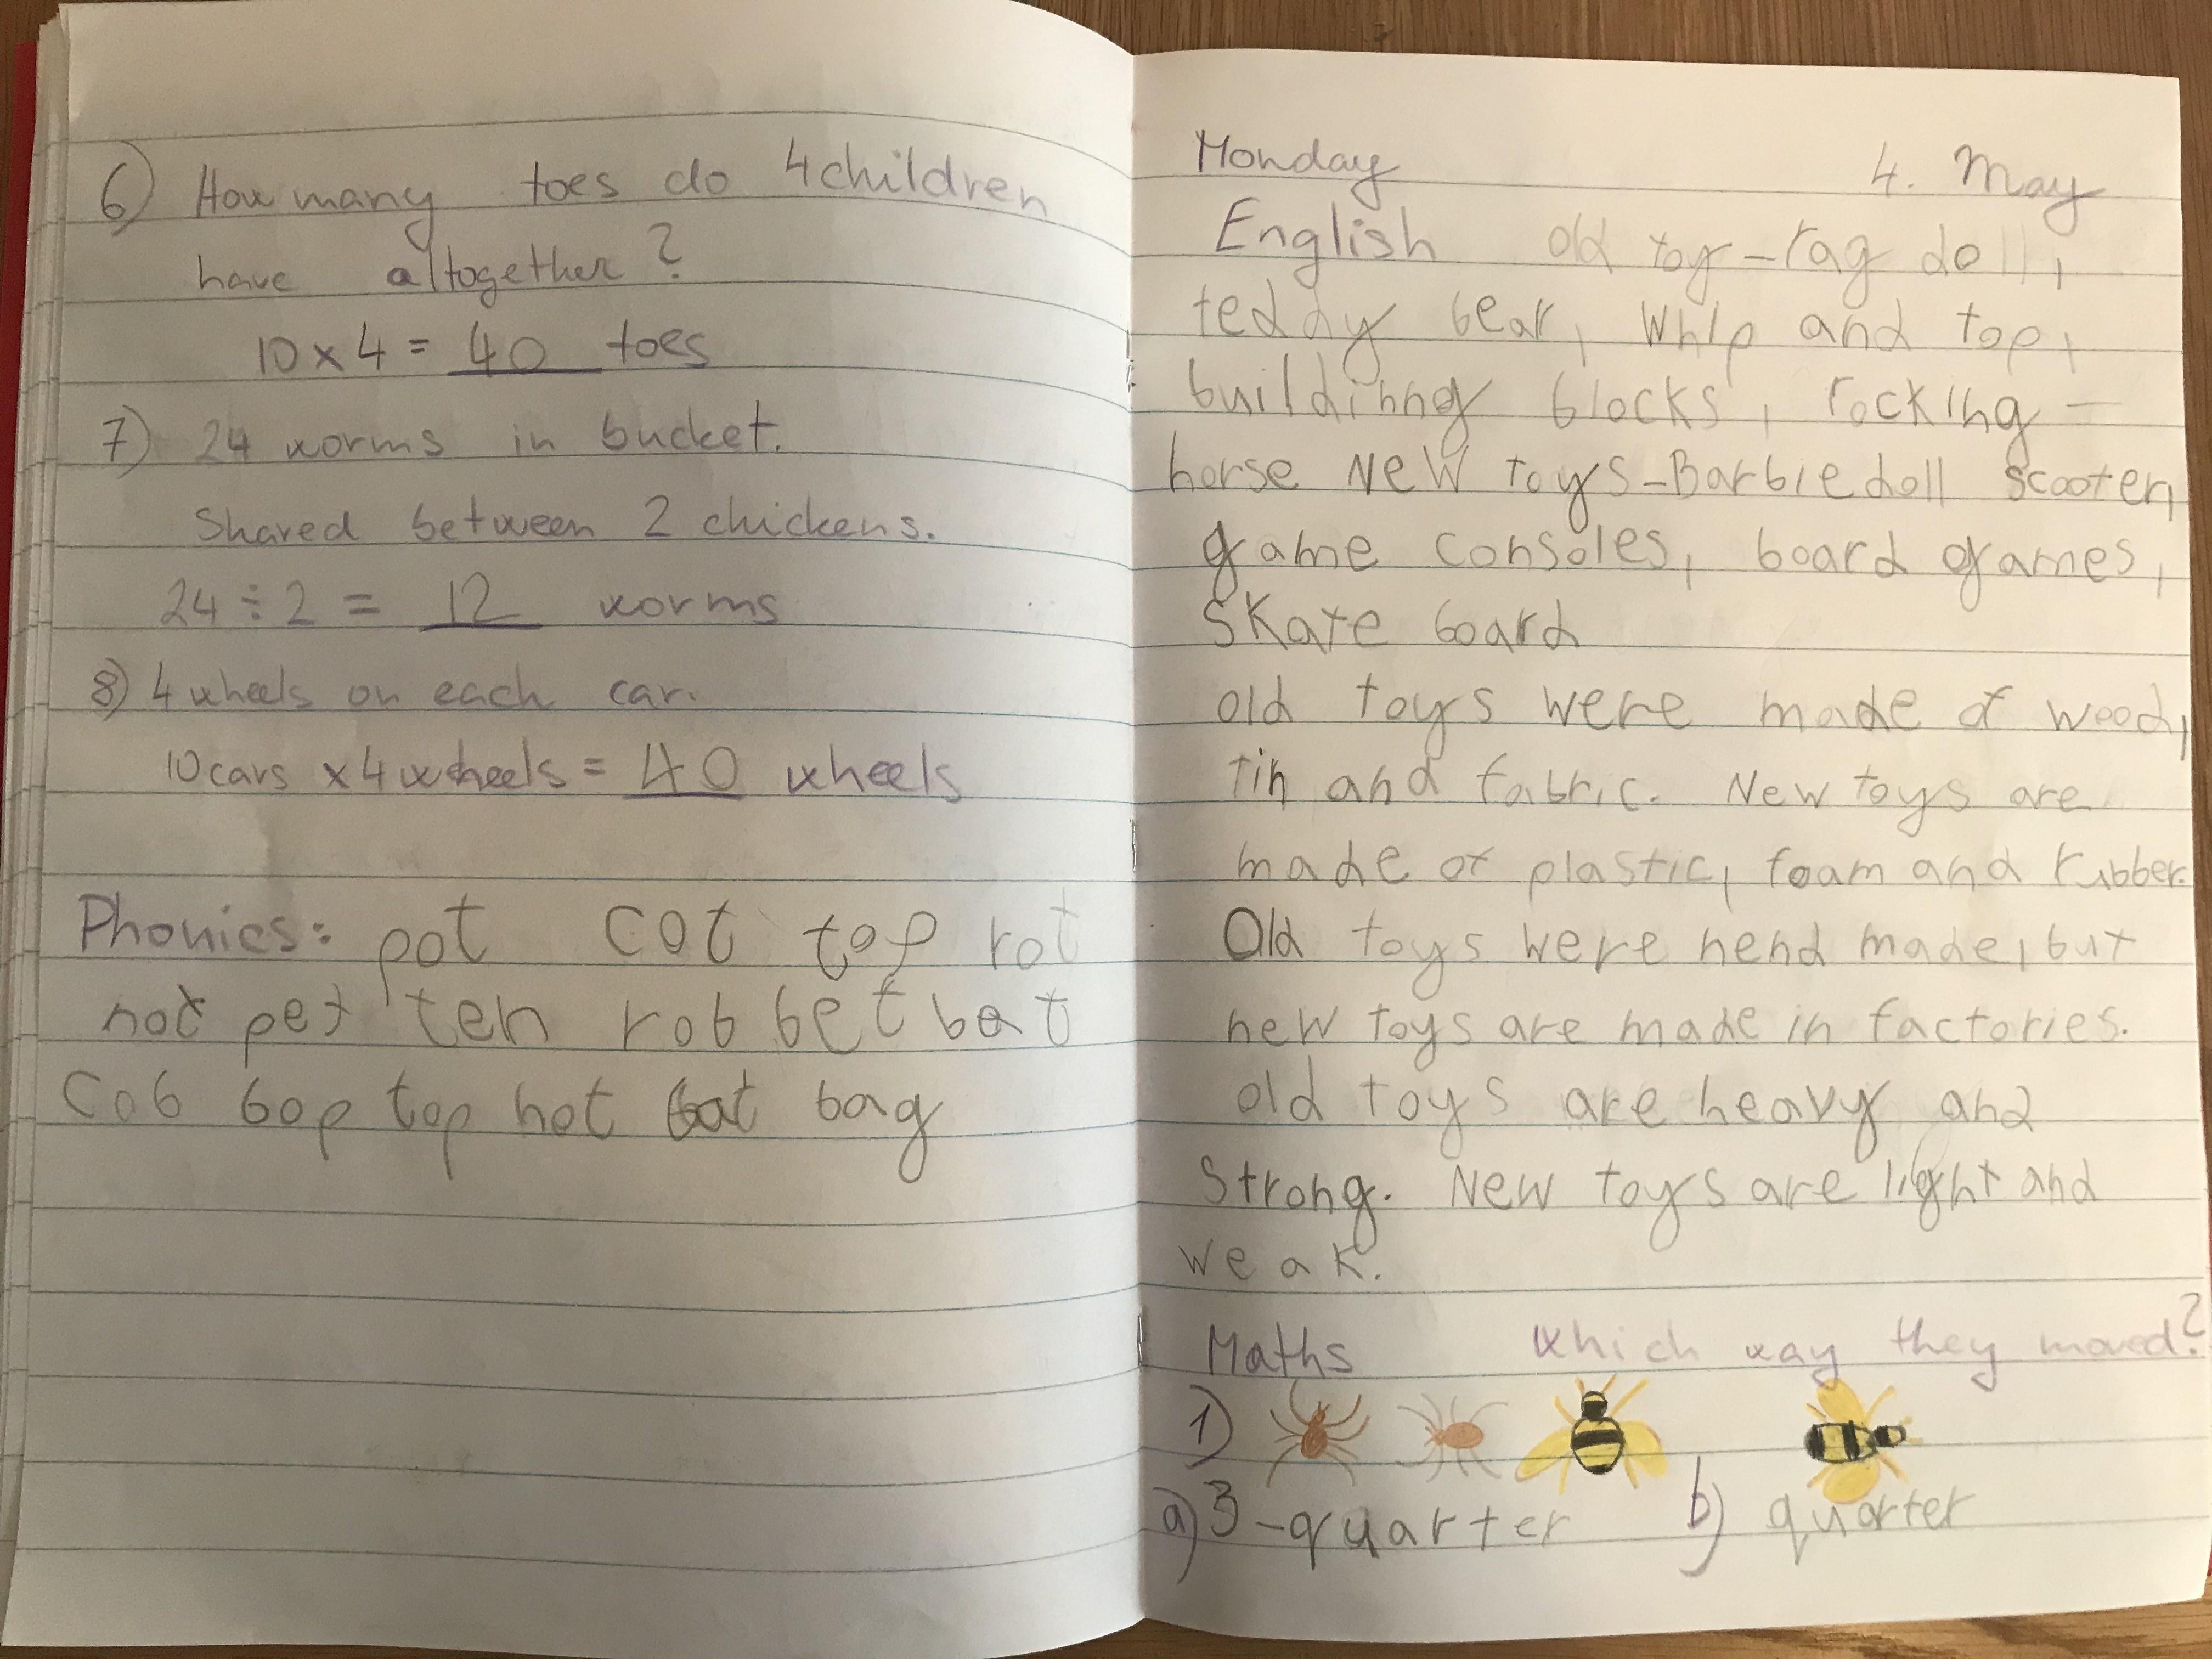 6) How many toes do 4 children
have altogether?
10 x 4 = 40 toes
7) 24 worms in bucket.
Shared between 2 chickens.
24 ÷ 2 = 12 worms
8) 4 wheels on each car.
10 cars x 4 wheels = 40 wheels
Phonics: pot cot top rot
not pet ten rob bet bat
cob bop top hot bat bag
Monday 4. May
English old toy - rag doll,
teddy bear, whip and top,
buildinng blocks, rocking -
horse New toys - Barbie doll scooter,
game consoles, board games,
skate board
old toys were made of wood,
tin and fabric. New toys are
made of plastic, foam and rubber.
Old toys were hend made, but
new toys are made in factories.
old toys are heavy and
strong. New toys are light and
weak.
Maths Which way they moved?
1)
a) 3-quarter b) quarter